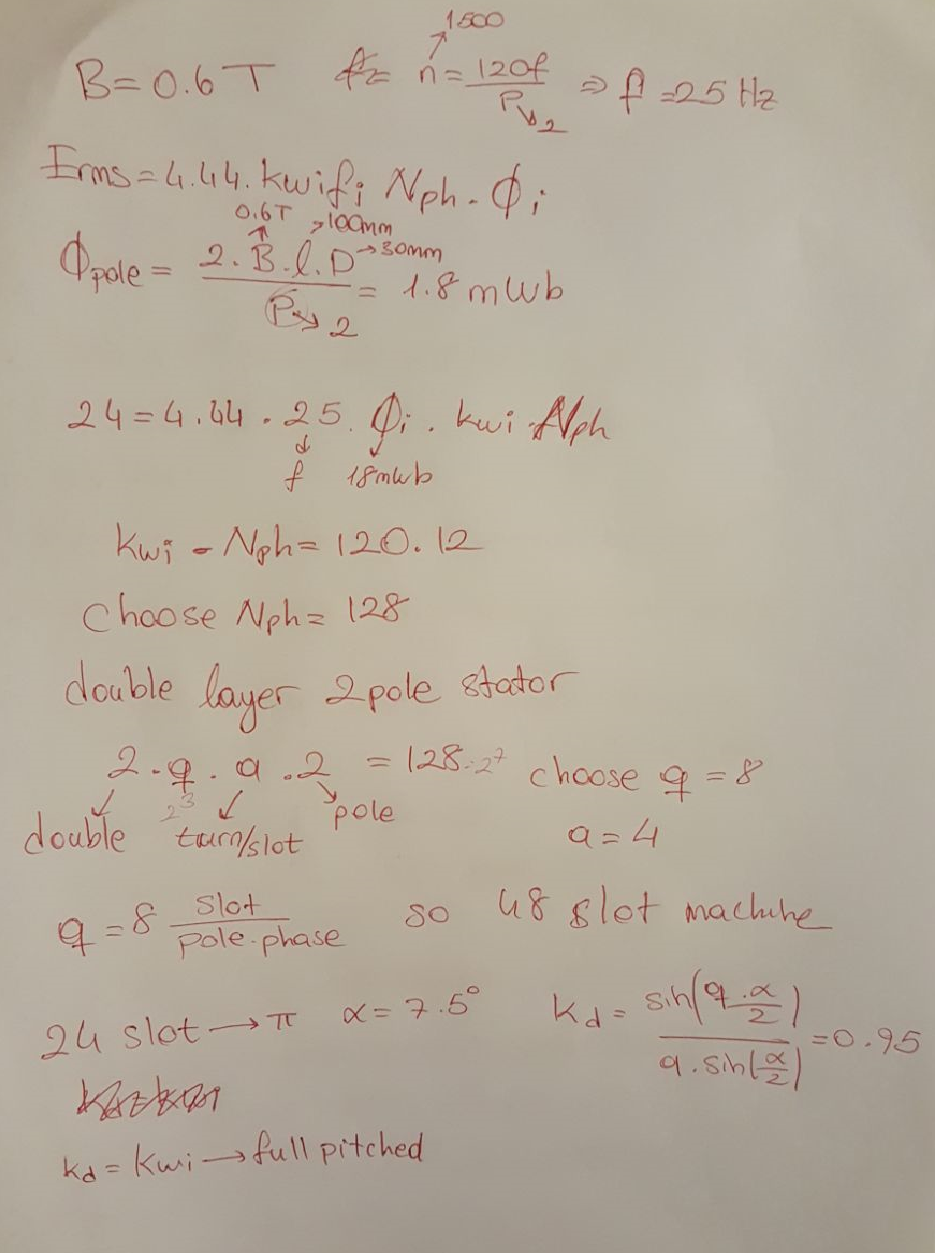 1500
B=0.6T f= n = 120f / P → 2 ⇒ f=25 Hz
Erms=4.44.kwifi Nph.Φi
0.6T →100mm
Φpole = 2.B.l.D →30mm / P → 2 = 1.8 mWb
24=4.44.25.Φi.kwi.Nph
f 18mwb
kwi-Nph=120.12
choose Nph=128
double layer 2pole stator
2.q.a.2 =128=2⁷ choose q=8
2³
double turn/slot pole a=4
q=8 slot / pole.phase so 48 slot machine
24 slot→π α=7.5° kd= sin(q.α/2) / q.sin(α/2) =0.95
kd=kwi→full pitched